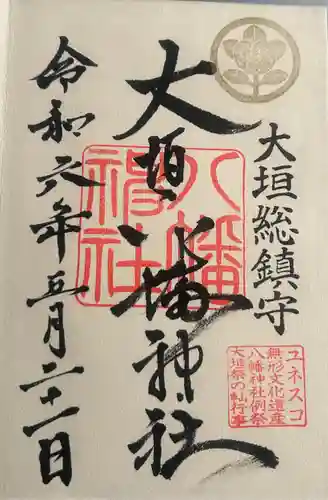 大垣総鎮守
大垣八幡神社
令和六年五月二十一日
八幡
神社
ユネスコ
無形文化遺産
八幡神社例祭
大垣祭の軕行事